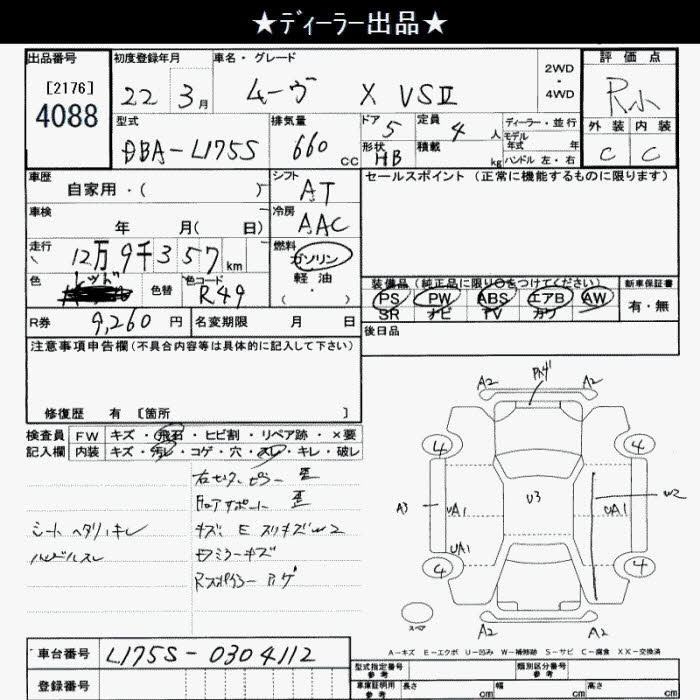 ★ディーラー出品★
出品番号 初度登録年月 車名・グレード 評価点
[2176] 22 3月 ムーヴ X VSⅡ 2WD・4WD R小
4088
型式 排気量 ドア 5 定員 4人 ディーラー・並行 外装 内装
モデル年式 年式
DBA-L175S 660cc 形状 HB 積載 kg ハンドル 左・右 C C
車歴 自家用・( ) シフト AT セールスポイント (正常に機能するものに限ります)
車検 年 月( 日) 冷房 AAC
走行 12万9千357km 燃料 ガソリン
軽油
( ・ )
色 レッド 色替 色コード R49
装備品 (純正品に限り○をつけてください) 新車保証書
PS PW ABS エアB AW 有・無
SR ナビ TV カワ
R券 9,260円 名変期限 月 日 後日品
注意事項申告欄(不具合内容等は具体的に記入して下さい)
修復歴 有 [箇所 ]
検査員 FW キズ・飛石・ヒビ割・リペア跡・×要
記入欄 内装 キズ・汚レ・コゲ・穴・スレ・キレ・破レ
右センターピラー 歪
フロアサポート 歪
シート ヘタリ、キレ キズ、E スリキズ W2
ハンドルスレ
Rスポイラー
A2 A2
4 4
A3 UA1 U3 UA1 W2
UA1
4 4
スペア A2 A2
A-キズ E-エクボ U-凹み W-補修跡 S-サビ C-腐食 XX-交換済
車台番号 L175S-0304112
登録番号
型式指定番号 参考 類別区分番号 参考
車庫証明用 参考 長さ cm 幅 cm 高さ cm